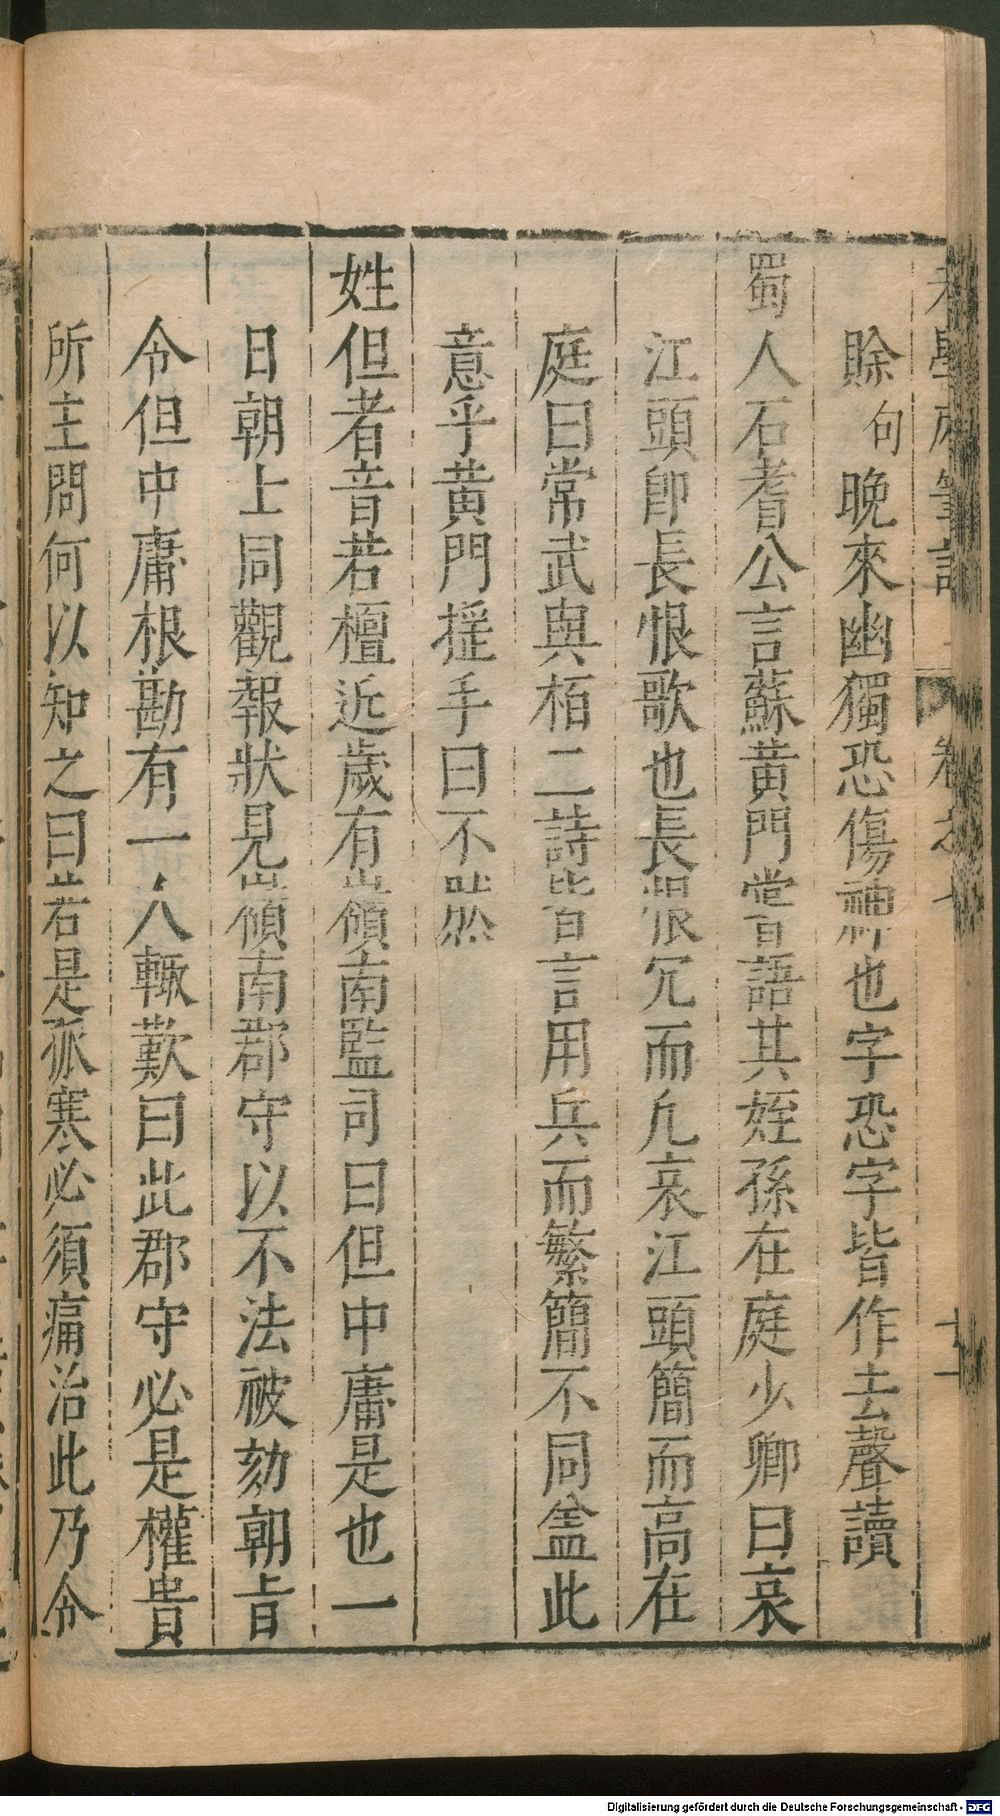 老學庵筆記 卷之七 十一
賒句晩來幽獨恐傷神也字恐字皆作去聲讀
蜀人石耆公言蘇黃門嘗語其姪孫在庭少卿曰哀
江頭卽長恨歌也長恨冗而凢哀江頭簡而高在
庭曰常武與栢二詩皆言用兵而繁簡不同盖此
意乎黃門搖手曰不然
姓但者音若檀近歲有嶺南監司曰但中庸是也一
日朝士同觀報狀見嶺南郡守以不法被劾朝旨
令但中庸根勘有一人輒歎曰此郡守必是權貴
所主問何以知之曰若是孤寒必須痛治此乃令
Digitalisierung gefördert durch die Deutsche Forschungsgemeinschaft - DFG